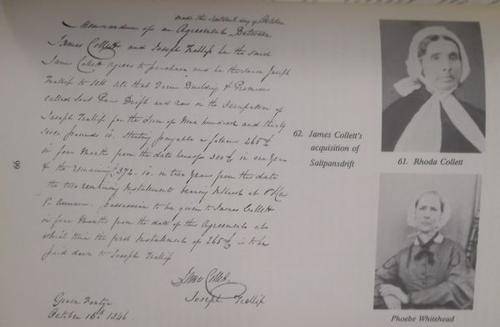 made the sixteenth day of October
Memorandum of an Agreement Between
James Collett and Joseph Trollip he the said
James Collett agrees to purchase and he the said Joseph
Trollip to sell all that Farm Building & Premises
called Salt Pans Drift and now in the Occupation of
Joseph Trollip for the Sum of Nine hundred and thirty
seven pounds 10. Sterling payable as follows 265£
in four Months from the date hereof 300£ in one Year
& the remaining 372. 10. in two Years from this date
the two remaining Instalments bearing Interest at
pr. Annum. possession to be given to James Collett
in four Months from the date of this Agreement at
which time the first Instalment of 265£ is to be
paid down to Joseph Trollip
James Collett
Joseph Trollip
Green Fountain
October 16th 1846
66
62. James Collett's
acquisition of
Saltpansdrift
61. Rhoda Collett
Phoebe Whitehead